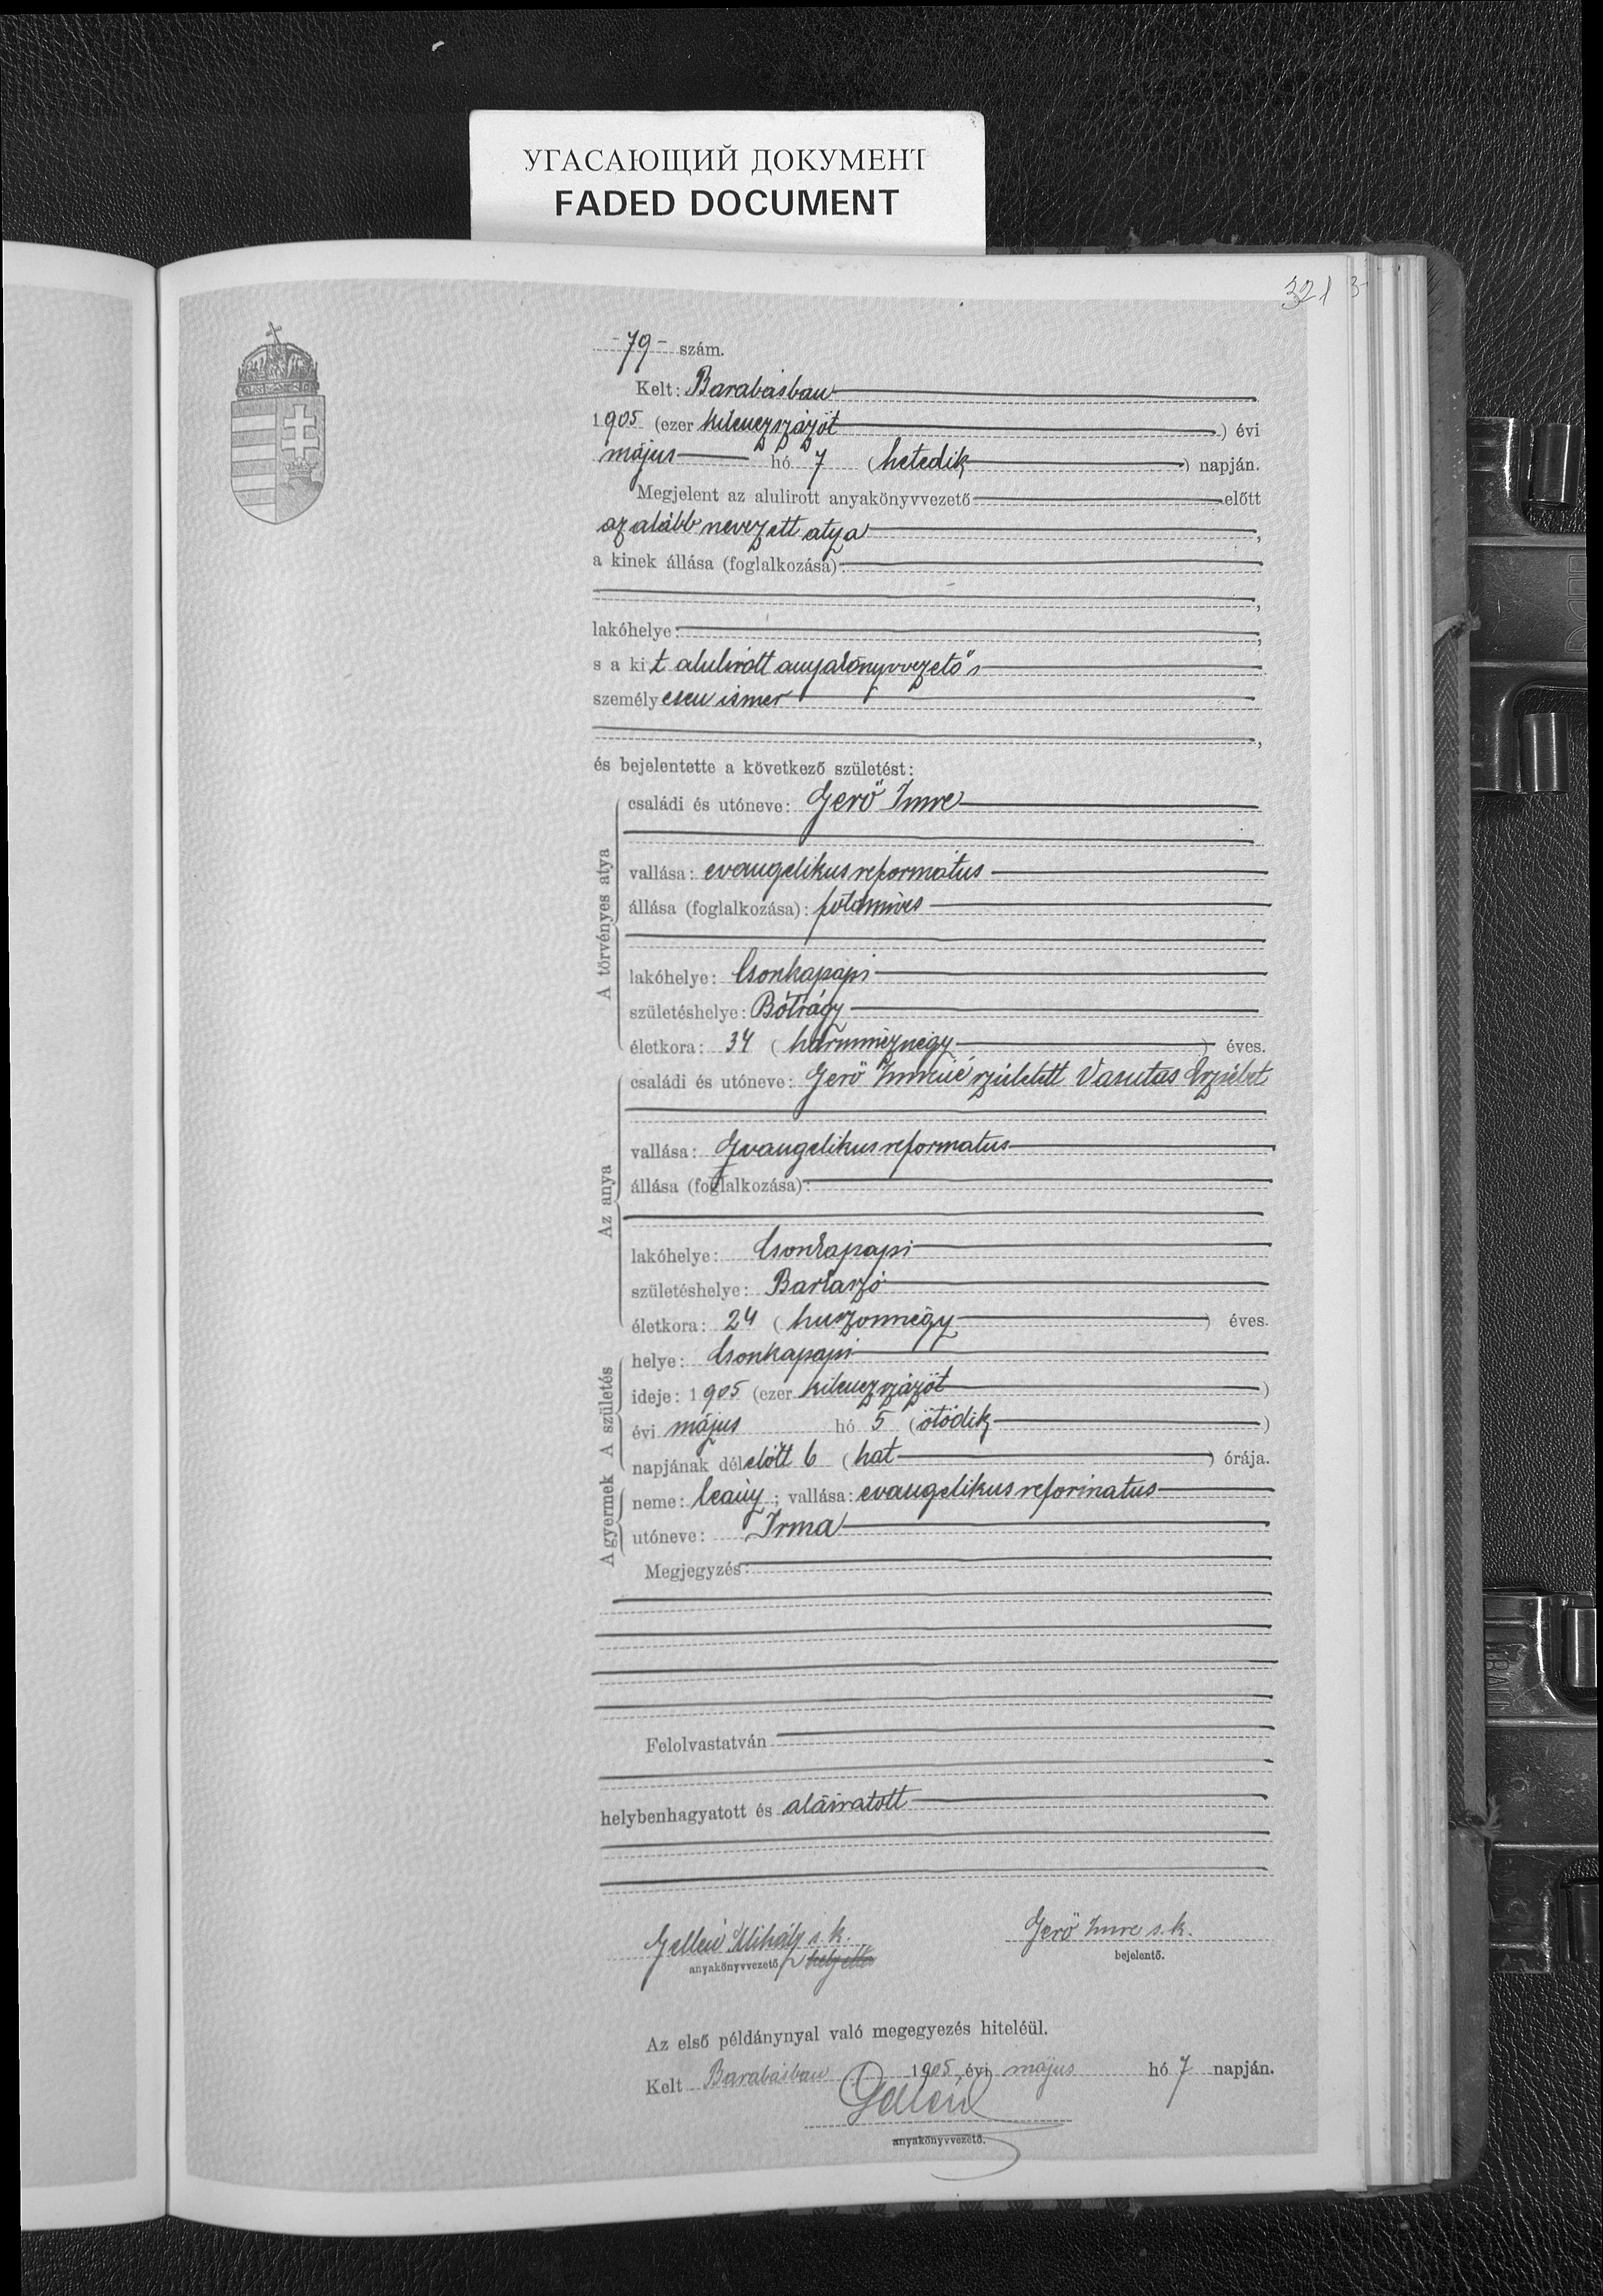 УГАСАЮЩИЙ ДОКУМЕНТ
FADED DOCUMENT
321 3
-79- szám.
Kelt: Barabásban
1905 (ezer kilenczszázöt) évi
május hó 7 (hetedik) napján.
Megjelent az alulirott anyakönyvvezető előtt
az alább nevezett atya,
a kinek állása (foglalkozása):
,
lakóhelye: ,
s a kit alulirott anyakönyvvezető
személyesen ismer
,
és bejelentette a következő születést:
A törvényes atya
családi és utóneve: Gerő Imre
vallása: evangelikus református
állása (foglalkozása): földmives
lakóhelye: Csonkapapi
születéshelye: Bótrágy
életkora: 34 (harmincznégy) éves.
Az anya
családi és utóneve: Gerő Imréné született Vasutas Erzsébet
vallása: Evangelikus reformatus
állása (foglalkozása):
lakóhelye: Csonkapapi
születéshelye: Barkaszó
életkora: 24 (huszonnégy) éves.
A születés
helye: Csonkapapi
ideje: 1905 (ezer kilenczszázöt)
évi május hó 5 (ötödik)
napjának délelőtt 6 (hat) órája.
A gyermek
neme: leány; vallása: evangelikus reformatus
utóneve: Irma
Megjegyzés:
Felolvastatván
helybenhagyatott és aláiratott
Gellén Mihály s. k. Gerő Imre s. k.
anyakönyvvezető helyettes bejelentő.
Az első példánynyal való megegyezés hiteléül.
Kelt Barabásban 1905 évi május hó 7 napján.
Gellén
anyakönyvvezető.